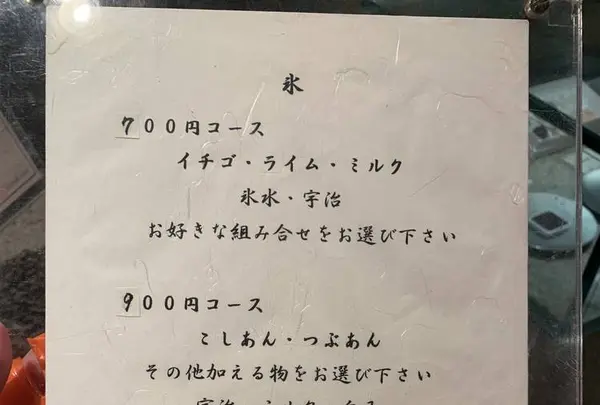 氷
700円コース
イチゴ・ライム・ミルク
氷水・宇治
お好きな組み合せをお選び下さい
900円コース
こしあん・つぶあん
その他加える物をお選び下さい